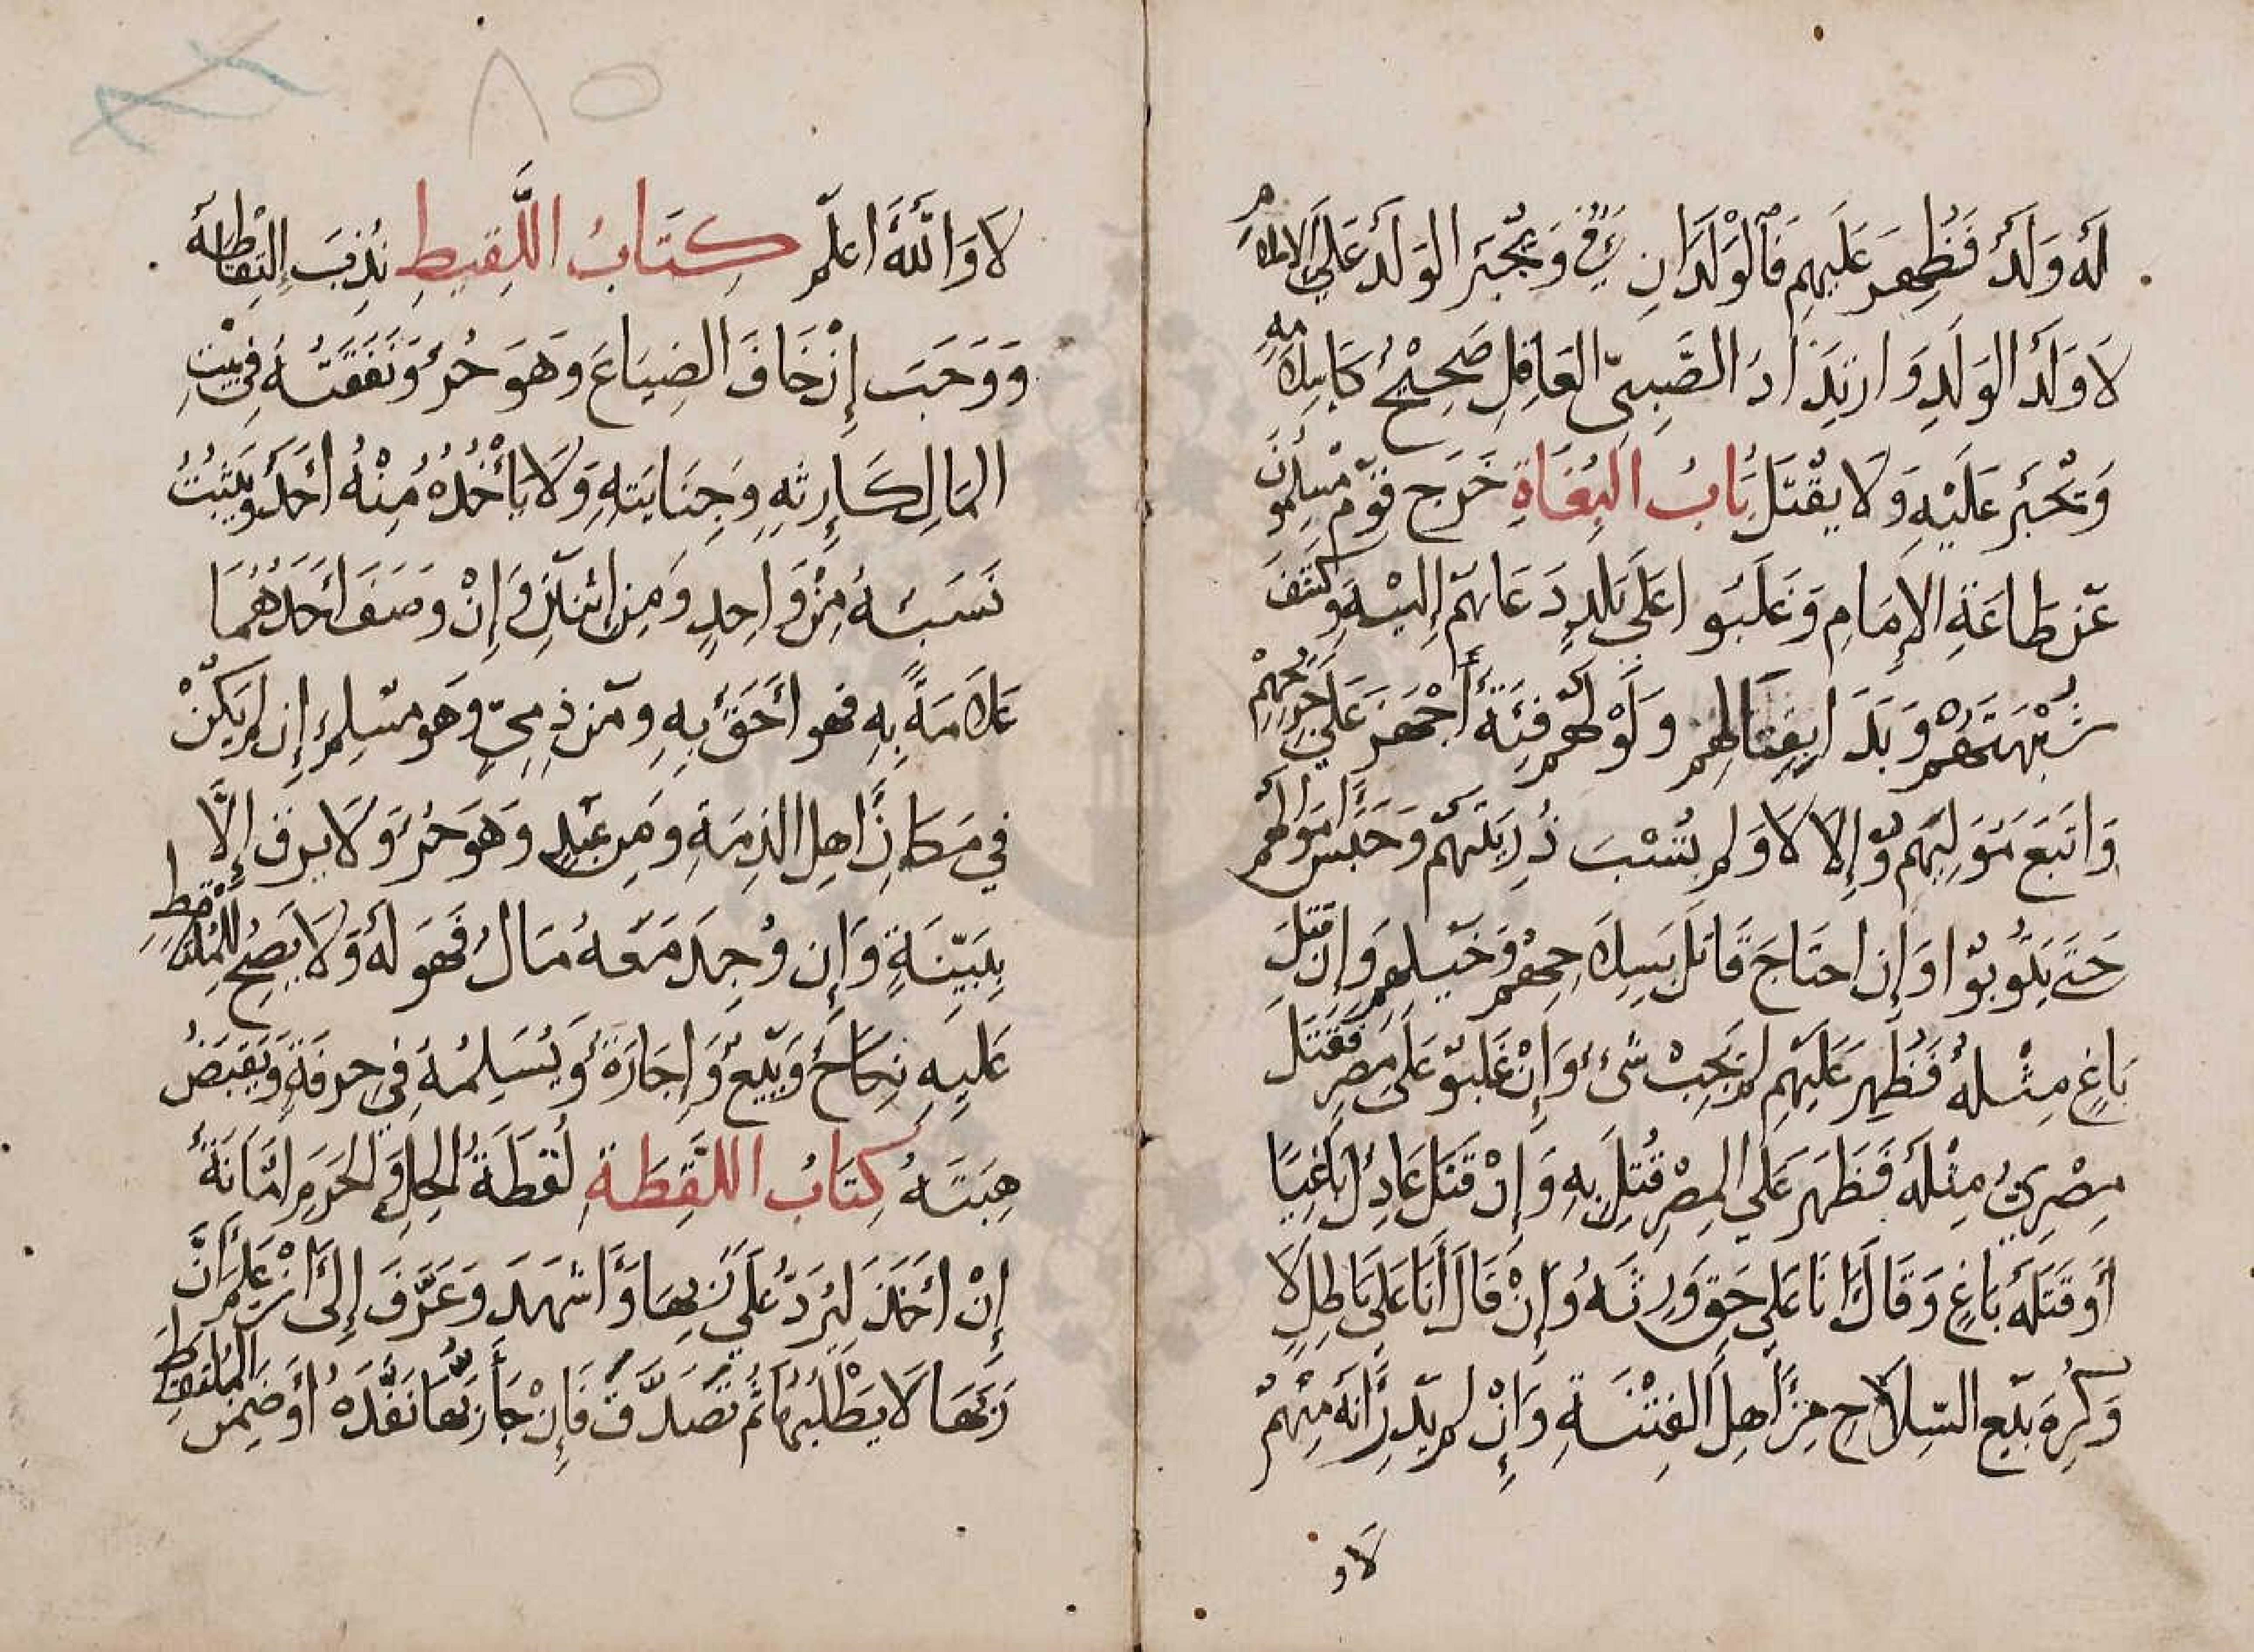 لَه وَلَدٌ فَظُهِرَ عَلَيهِم فَالْوَلَدَانِ فَيْءٌ وَيُجْبَر الوَلَدُ عَلَى الاسلام
لَا وَلَدُ الوَلَدِ وَارتِدَادُ الصَّبِيّ العَاقِلِ صَحِيْحٌ كَاسِلامِهِ
وَيُجْبَر عَلَيْهِ وَلَا يقْتَل بَابُ البُغَاةِ خَرَج قَوْم مُسْلِمُونَ
عَن طَاعَةِ الإِمَامِ وَغَلَبَوا عَلَى بَلَدٍ دَعَاهُم إِلَيْهِ وَكَشَفَ
شُبْهَتَهُمْ وَبَدَا بِقِتَالِهِم وَلَوْ لَهُم فِئَةٌ أُجْهَز عَلَى جَرِيحِهِمْ
وَاتبَعَ مَوَلِيَهُم وَإِلا لَا وَلَم يُسْبَ ذُرِيَتَهُم وَحَبَسَ أمْوَالَهُم
حَتَى يَتُوبُوا وَإِن احتَاجَ قَاتَل بِسِلَاحِهِمْ وَخَيلِهِم وَإِن قَتَلَ
بَاغٍ مِثْلَهُ فَظُهِرَ عَلَيهِم لَم يَجِبْ شَئ وَإِنْ غَلَبوُ عَلَى مِصرِ فقَتَلَ
مِصْرِيٌ مِثْلَهُ فَظَهَر عَلَي المِصْرِ قُتِلَ بِهِ وَإِنْ قَتَل عَادِلٌ بَاغِيًا
أوَ قَتَلَهُ بَاغٍ وَقَالَ انَا عَلى حَقٍ وَرِثَه وَإِنْ قَالَ أَنَا عَلَى بَاطِلٍ لَا
وَكُرِهَ بَيْع السّلَاحِ مِن أَهلِ الفِتْنَةِ وَإِنْ لَم يَدرِ أنَه مِنْهُمْ
لَا و
٨٥
لَا وَاللَّهُ اعلَم كِتَابُ اللَّقِيطِ نُدِبَ إِلتِقَاطُهُ
وَوَجَبَ إِنْ خَافَ الضِيَاعَ وَهَوَ حُرٌ وَنَفَقَتُهُ فِي بَيْتِ
المَالِ كَإِرثِهِ وَجِنَايَتِهِ وَلَا يَأْخُذُهُ مِنْهُ أحَدٌ وَيَثْبُتُ
نَسَبُهُ مِنْ وَاحِدٍ وَمِن اثنَيْنِ وَإِنْ وَصَفَ أحَدُهُمَا
عَلَامَةً بِهِ فهو أحَقُ بِهِ وَمن ذِمِيٍّ وَهو مسْلِم إِن لَم يَكُنْ
فِي مَكَانِ أهلِ الذِمَةِ وَمِن عَبْدٍ وَهَوَ حُرٌ وَلَا يرق إِلَّا
بِبَيّنَةٍ وَإِن وُجِدَ مَعَهُ مَالٌ فَهَوَ لَهُ وَلَا يَصِحُ لِلْمُلْتَقِطِ
عَلَيِهِ نِكَاحٌ وَبَيْعٌ وَإِجَارَةٌ وَيُسَلِمُهُ فِي حِرفَةٍ وَيَقبَضُ
هِبَتَهُ كِتَابُ اللُّقَطَةِ لُقطَةُ الحِلِ وَالحَرَمِ امَانَةٌ
إِنْ أخَذَ لِيَرُدَّ عَلَي رَبِهَا وَأَشهَدَ وَعَرَّفَ إِلَىَ انْ عَلِمَ أنَّ
رَبَهَا لَا يَطْلُبُهَا ثُم تَصَدَّقَ فَإِنْ جَأَ رَبُّهَا نَفَّذَهُ أوَ ضَمِنَ المُلتَقِطَ